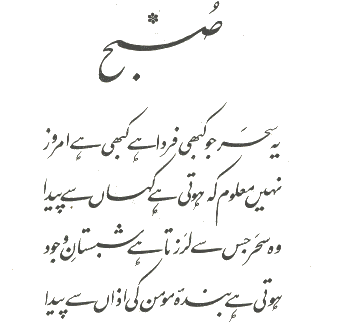 صُبح
یہ سَحر جو کبھی فردا ہے کبھی ہے امروز
نہیں معلوم کہ ہوتی ہے کہاں سے پیدا
وہ سَحر جس سے لرَزتا ہے شبستانِ وجُود
ہوتی ہے بندۂ مومن کی اذاں سے پیدا